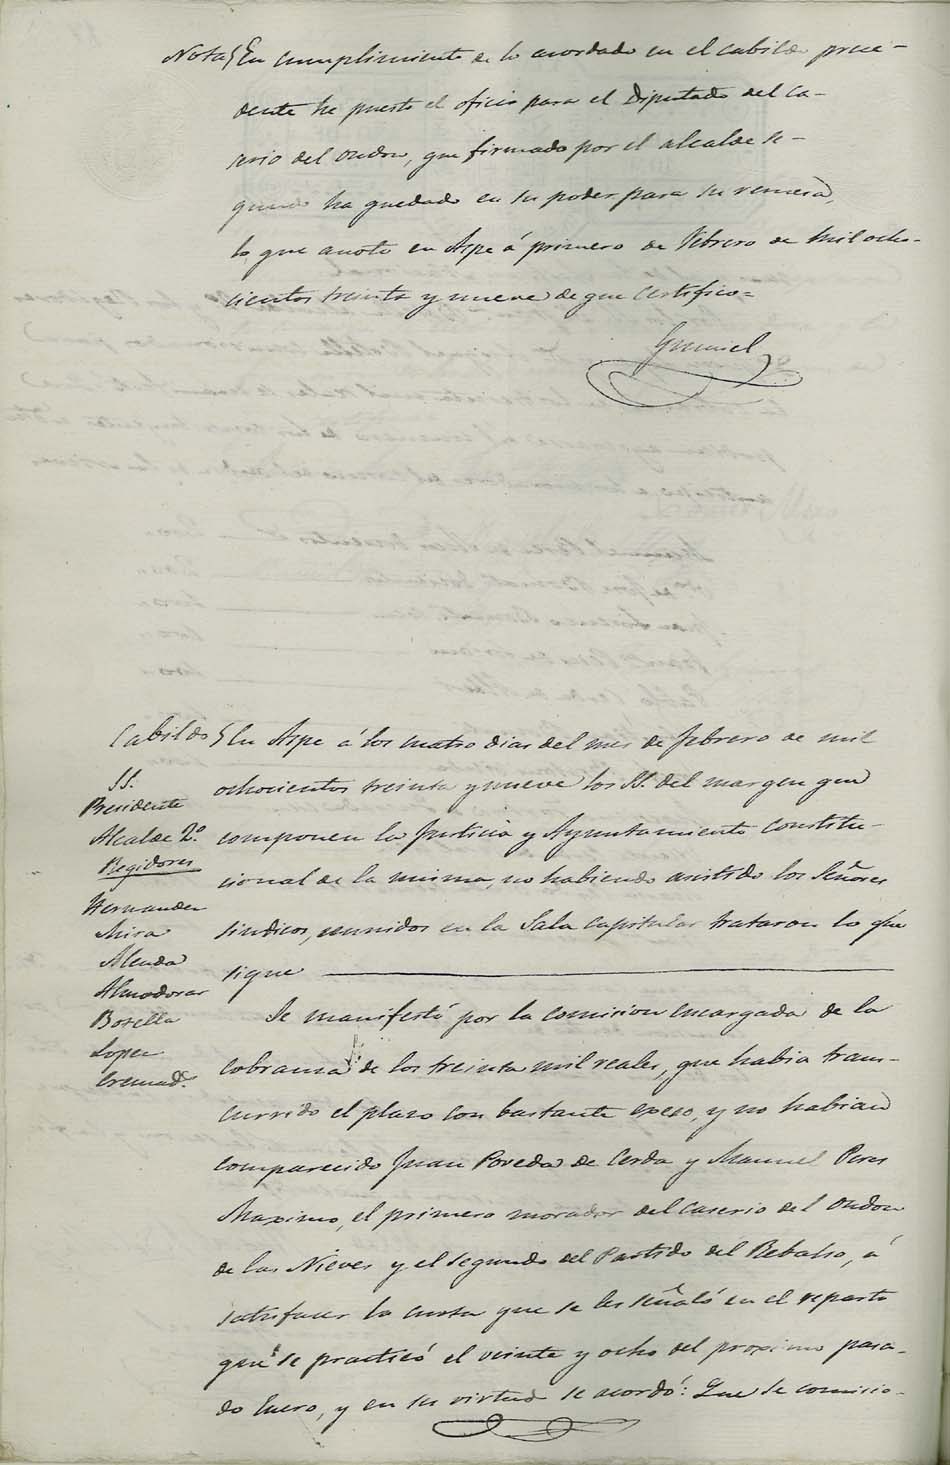 Nota} En cumplimiento de lo acordado en el cabildo prece-
dente he puesto el oficio para el Diputado del ca-
serio del ondon, que firmado por el alcalde se-
gundo ha quedado en su poder para su remesa,
lo que anoto en Aspe á primero de Febrero de mil ocho-
cientos treinta y nueve de que certifico=
Cabildo} En Aspe á los cuatro dias del mes de febrero de mil
ochocientos treinta y nueve los SS. del margen que
componen la Justicia y Ayuntamiento constitu-
cional de la misma, no habiendo asistido los Señores
sindicos, reunidos en la Sala Capitular trataron lo que
sigue
SS.
Presidente
Alcalde 2.º
Regidores
Hernandez
Mira
Alenda
Almodovar
Botella
Lopez
Cremad.s
Se manifestó por la comision encargada de la
cobranza de los treinta mil reales, que habia trans-
currido el plazo con bastante eceso, y no habian
comparecido Juan Poveda de Cerda y Manuel Peres
Maximo, el primero morador del Caserio del Ondon
de las Nieves y el segundo del Partido del Rebalso, á
satisfacer la cuota que se les señaló en el reparto
que se practicó el veinte y ocho del proximo pasa-
do Enero, y en su virtud se acordó: Que se comisio-